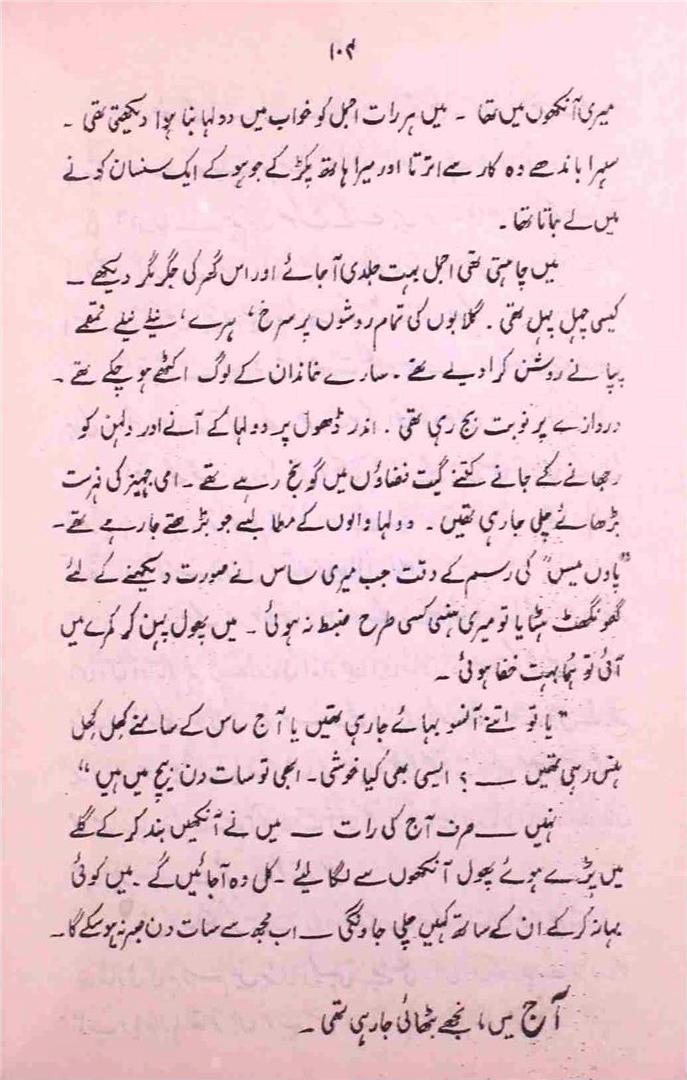 ۱۰۴
میری آنکھوں میں تھا ۔ میں ہر رات اجمل کو خواب میں دولہا بنا ہوا دیکھتی تھی ۔
سہرا باندھے وہ کار سے اترتا اور میرا ہاتھ پکڑ کے جوہو کے ایک سنسان کونے
میں لے جاتا تھا ۔
میں چاہتی تھی اجمل بہت جلدی آ جائے اور اس گھر کی جگر مگر دیکھے ۔
کیسی چہل پہل تھی ۔ گلابوں کی تمام روشوں پر سرخ ، ہرے ، نیلے پیلے قمقمے
پپا نے روشن کرا دیے تھے ۔ سارے خاندان کے لوگ اکٹھے ہو چکے تھے ۔
دروازے پر نوبت بج رہی تھی ۔ اندر ڈھول پر دولہا کے آنے اور دلہن کو
رجھانے کے جانے کتنے گیت فضاؤں میں گونج رہے تھے ۔ امی جہیز کی فہرست
بڑھائے چلی جا رہی تھیں ۔ دولہا والوں کے مطالبے جو بڑھتے جا رہے تھے ۔
”پاؤں میس“ کی رسم کے وقت جب میری ساس نے صورت دیکھنے کے لئے
گھونگھٹ ہٹایا تو میری ہنسی کسی طرح ضبط نہ ہوئی ۔ میں پھول پہن کر کمرے میں
آئی تو ہما بہت خفا ہوئی ۔
”یا تو اتنے آنسو بہائے جا رہی تھیں یا آج ساس کے سامنے کھل کھل
ہنس رہی تھیں ـــ ؟ ایسی بھی کیا خوشی ۔ ابھی تو سات دن بیچ میں ہیں “
نہیں ـــ صرف آج کی رات ـــ میں نے آنکھیں بند کر کے گلے
میں پڑے ہوئے پھول آنکھوں سے لگا لیئے ۔ کل وہ آ جائیں گے ۔ میں کوئی
بہانہ کر کے ان کے ساتھ کہیں چلی جاونگی ـــ اب مجھ سے سات دن صبر نہ ہو سکے گا ۔
آج میں مانجھے بٹھائی جا رہی تھی ۔